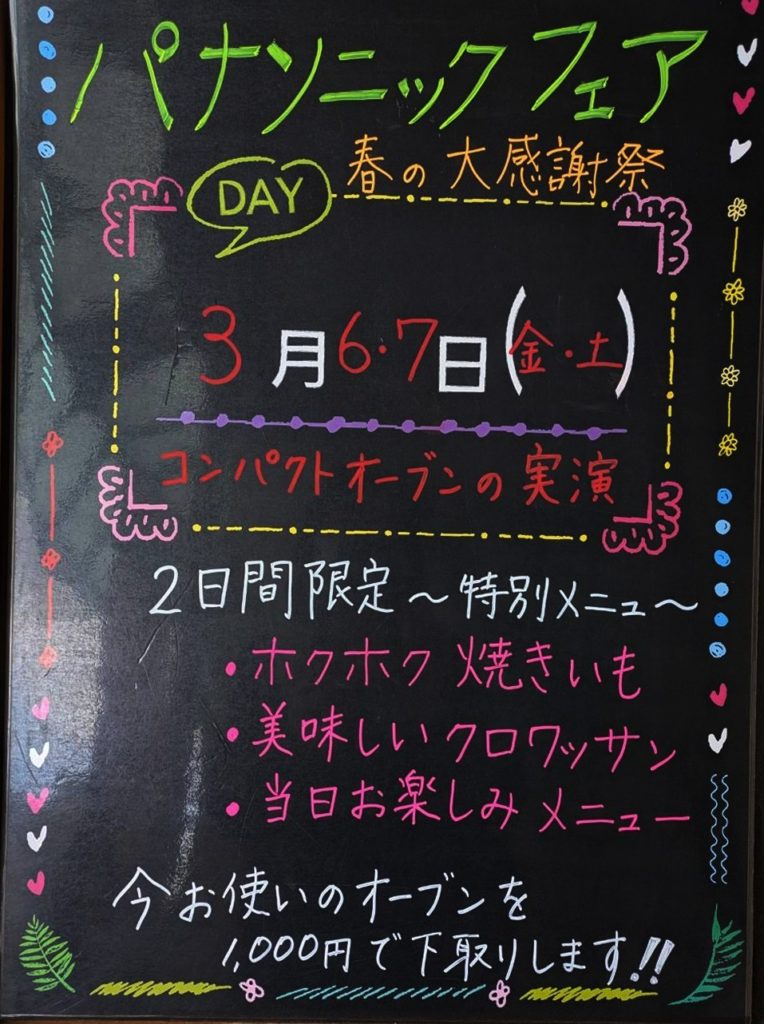 パナソニックフェア
春の大感謝祭
DAY
3月6・7日(金・土)
コンパクトオーブンの実演
2日間限定～特別メニュー～
・ホクホク焼きいも
・美味しいクロワッサン
・当日お楽しみメニュー
今お使いのオーブンを
1,000円で下取りします!!